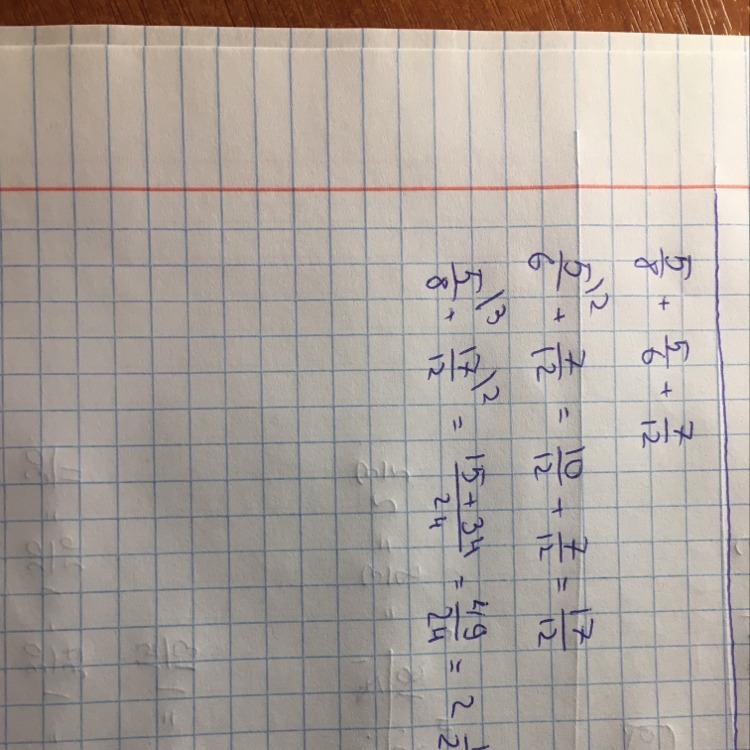 5/8 + 5/6 + 7/12
5/6 \2 + 7/12 = 10/12 + 7/12 = 17/12
5/8 \3 + 17/12 \2 = (15 + 34)/24 = 49/24 = 2